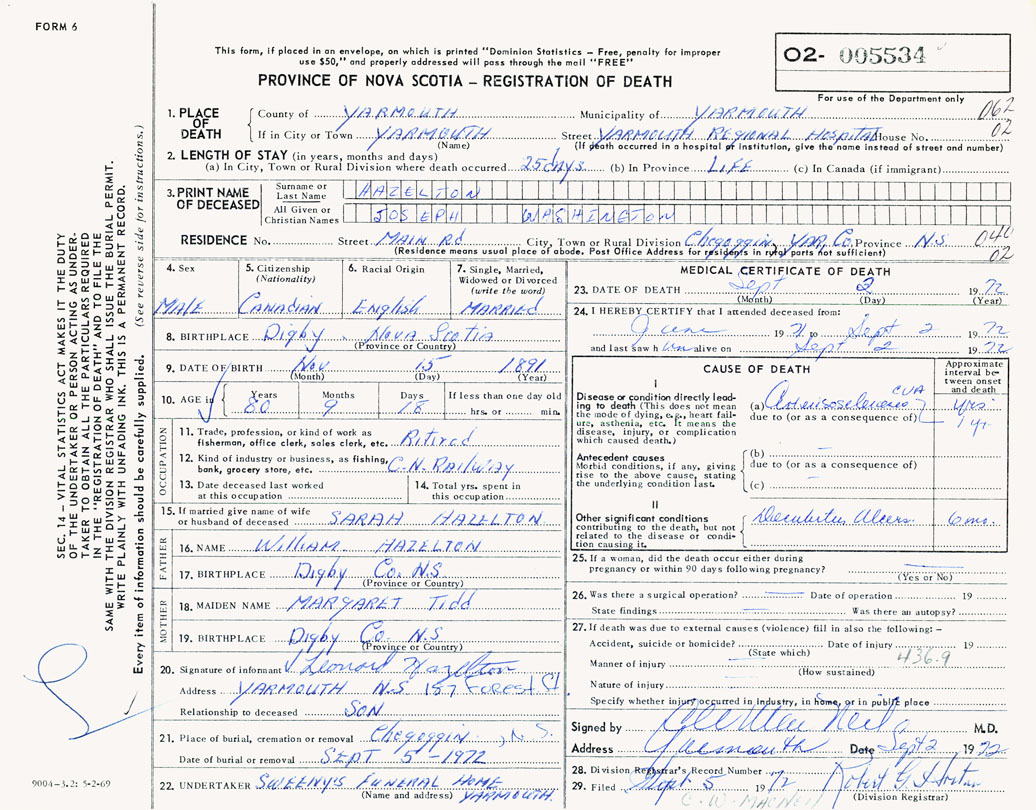 FORM 6
This form, if placed in an envelope, on which is printed "Dominion Statistics – Free, penalty for improper
use $50," and properly addressed will pass through the mail "FREE"
PROVINCE OF NOVA SCOTIA – REGISTRATION OF DEATH
O2- 005534
For use of the Department only
062
02
1. PLACE OF DEATH
County of YARMOUTH Municipality of YARMOUTH
If in City or Town YARMOUTH Street YARMOUTH REGIONAL HOSPITAL House No.
(Name) (If death occurred in a hospital or institution, give the name instead of street and number)
2. LENGTH OF STAY (in years, months and days)
(a) In City, Town or Rural Division where death occurred 25 days (b) In Province LIFE (c) In Canada (if immigrant)
3. PRINT NAME OF DECEASED
Surname or Last Name HAZELTON
All Given or Christian Names JOSEPH WASHINGTON
RESIDENCE No. Street MAIN Rd City, Town or Rural Division Chegoggin, YAR. Co. Province N.S
(Residence means usual place of abode. Post Office Address for residents in rural parts not sufficient)
02
4. Sex MALE
5. Citizenship (Nationality) CANADIAN
6. Racial Origin English
7. Single, Married, Widowed or Divorced (write the word) MARRIED
8. BIRTHPLACE Digby, Nova Scotia
(Province or Country)
9. DATE OF BIRTH Nov 15 1891
(Month) (Day) (Year)
10. AGE in Years 80 Months 9 Days 18 If less than one day old hrs. or min.
OCCUPATION
11. Trade, profession, or kind of work as
fisherman, office clerk, sales clerk, etc. Retired
12. Kind of industry or business, as fishing,
bank, grocery store, etc. C.N. RAILWAY
13. Date deceased last worked
at this occupation
14. Total yrs. spent in
this occupation
15. If married give name of wife
or husband of deceased SARAH HAZELTON
FATHER
16. NAME WILLIAM HAZELTON
17. BIRTHPLACE Digby Co. N.S
(Province or Country)
MOTHER
18. MAIDEN NAME MARGARET Tidd
19. BIRTHPLACE Digby Co N.S
(Province or Country)
20. Signature of informant Leonard Hazelton
Address YARMOUTH N.S 157 Forest St
Relationship to deceased SON
21. Place of burial, cremation or removal Chegoggin, N.S.
Date of burial or removal SEPT 5 - 1972
22. UNDERTAKER SWEENY'S FUNERAL HOME
(Name and address) YARMOUTH.
MEDICAL CERTIFICATE OF DEATH
23. DATE OF DEATH Sept 2 1972
(Month) (Day) (Year)
24. I HEREBY CERTIFY that I attended deceased from:
June 1971 to Sept 2 1972
and last saw him alive on Sept 2 1972
CAUSE OF DEATH
Approximate interval between onset and death
I
Disease or condition directly leading
to death (This does not mean
the mode of dying, e.g., heart failure,
asthenia, etc. It means the
disease, injury, or complication
which caused death.)
(a) Arteriosclerosis CVA yrs
due to (or as a consequence of) 1 yr.
Antecedent causes
Morbid conditions, if any, giving
rise to the above cause, stating
the underlying condition last.
(b)
due to (or as a consequence of)
(c)
II
Other significant conditions
contributing to the death, but not
related to the disease or condition
causing it.
Decubitus Ulcers 6 mo.
25. If a woman, did the death occur either during
pregnancy or within 90 days following pregnancy?
(Yes or No)
26. Was there a surgical operation? Date of operation 19
State findings Was there an autopsy?
27. If death was due to external causes (violence) fill in also the following: –
Accident, suicide or homicide? Date of injury 19
(State which) 436.9
Manner of injury
(How sustained)
Nature of injury
Specify whether injury occurred in industry, in home, or in public place
Signed by M.D.
Address Yarmouth Date Sept 2 1972
28. Division Registrar's Record Number
29. Filed Sept 5 1972 Robert G.
(Division Registrar)
C. W. MACNEIL
SEC. 14 – VITAL STATISTICS ACT MAKES IT THE DUTY
OF THE UNDERTAKER OR PERSON ACTING AS UNDER-
TAKER TO OBTAIN ALL THE PARTICULARS REQUIRED
IN THE "REGISTRATION OF DEATH" AND TO FILE THE
SAME WITH THE DIVISION REGISTRAR WHO SHALL ISSUE THE BURIAL PERMIT.
WRITE PLAINLY WITH UNFADING INK. THIS IS A PERMANENT RECORD.
Every item of information should be carefully supplied. (See reverse side for instructions.)
9004-3.2: 5-2-69